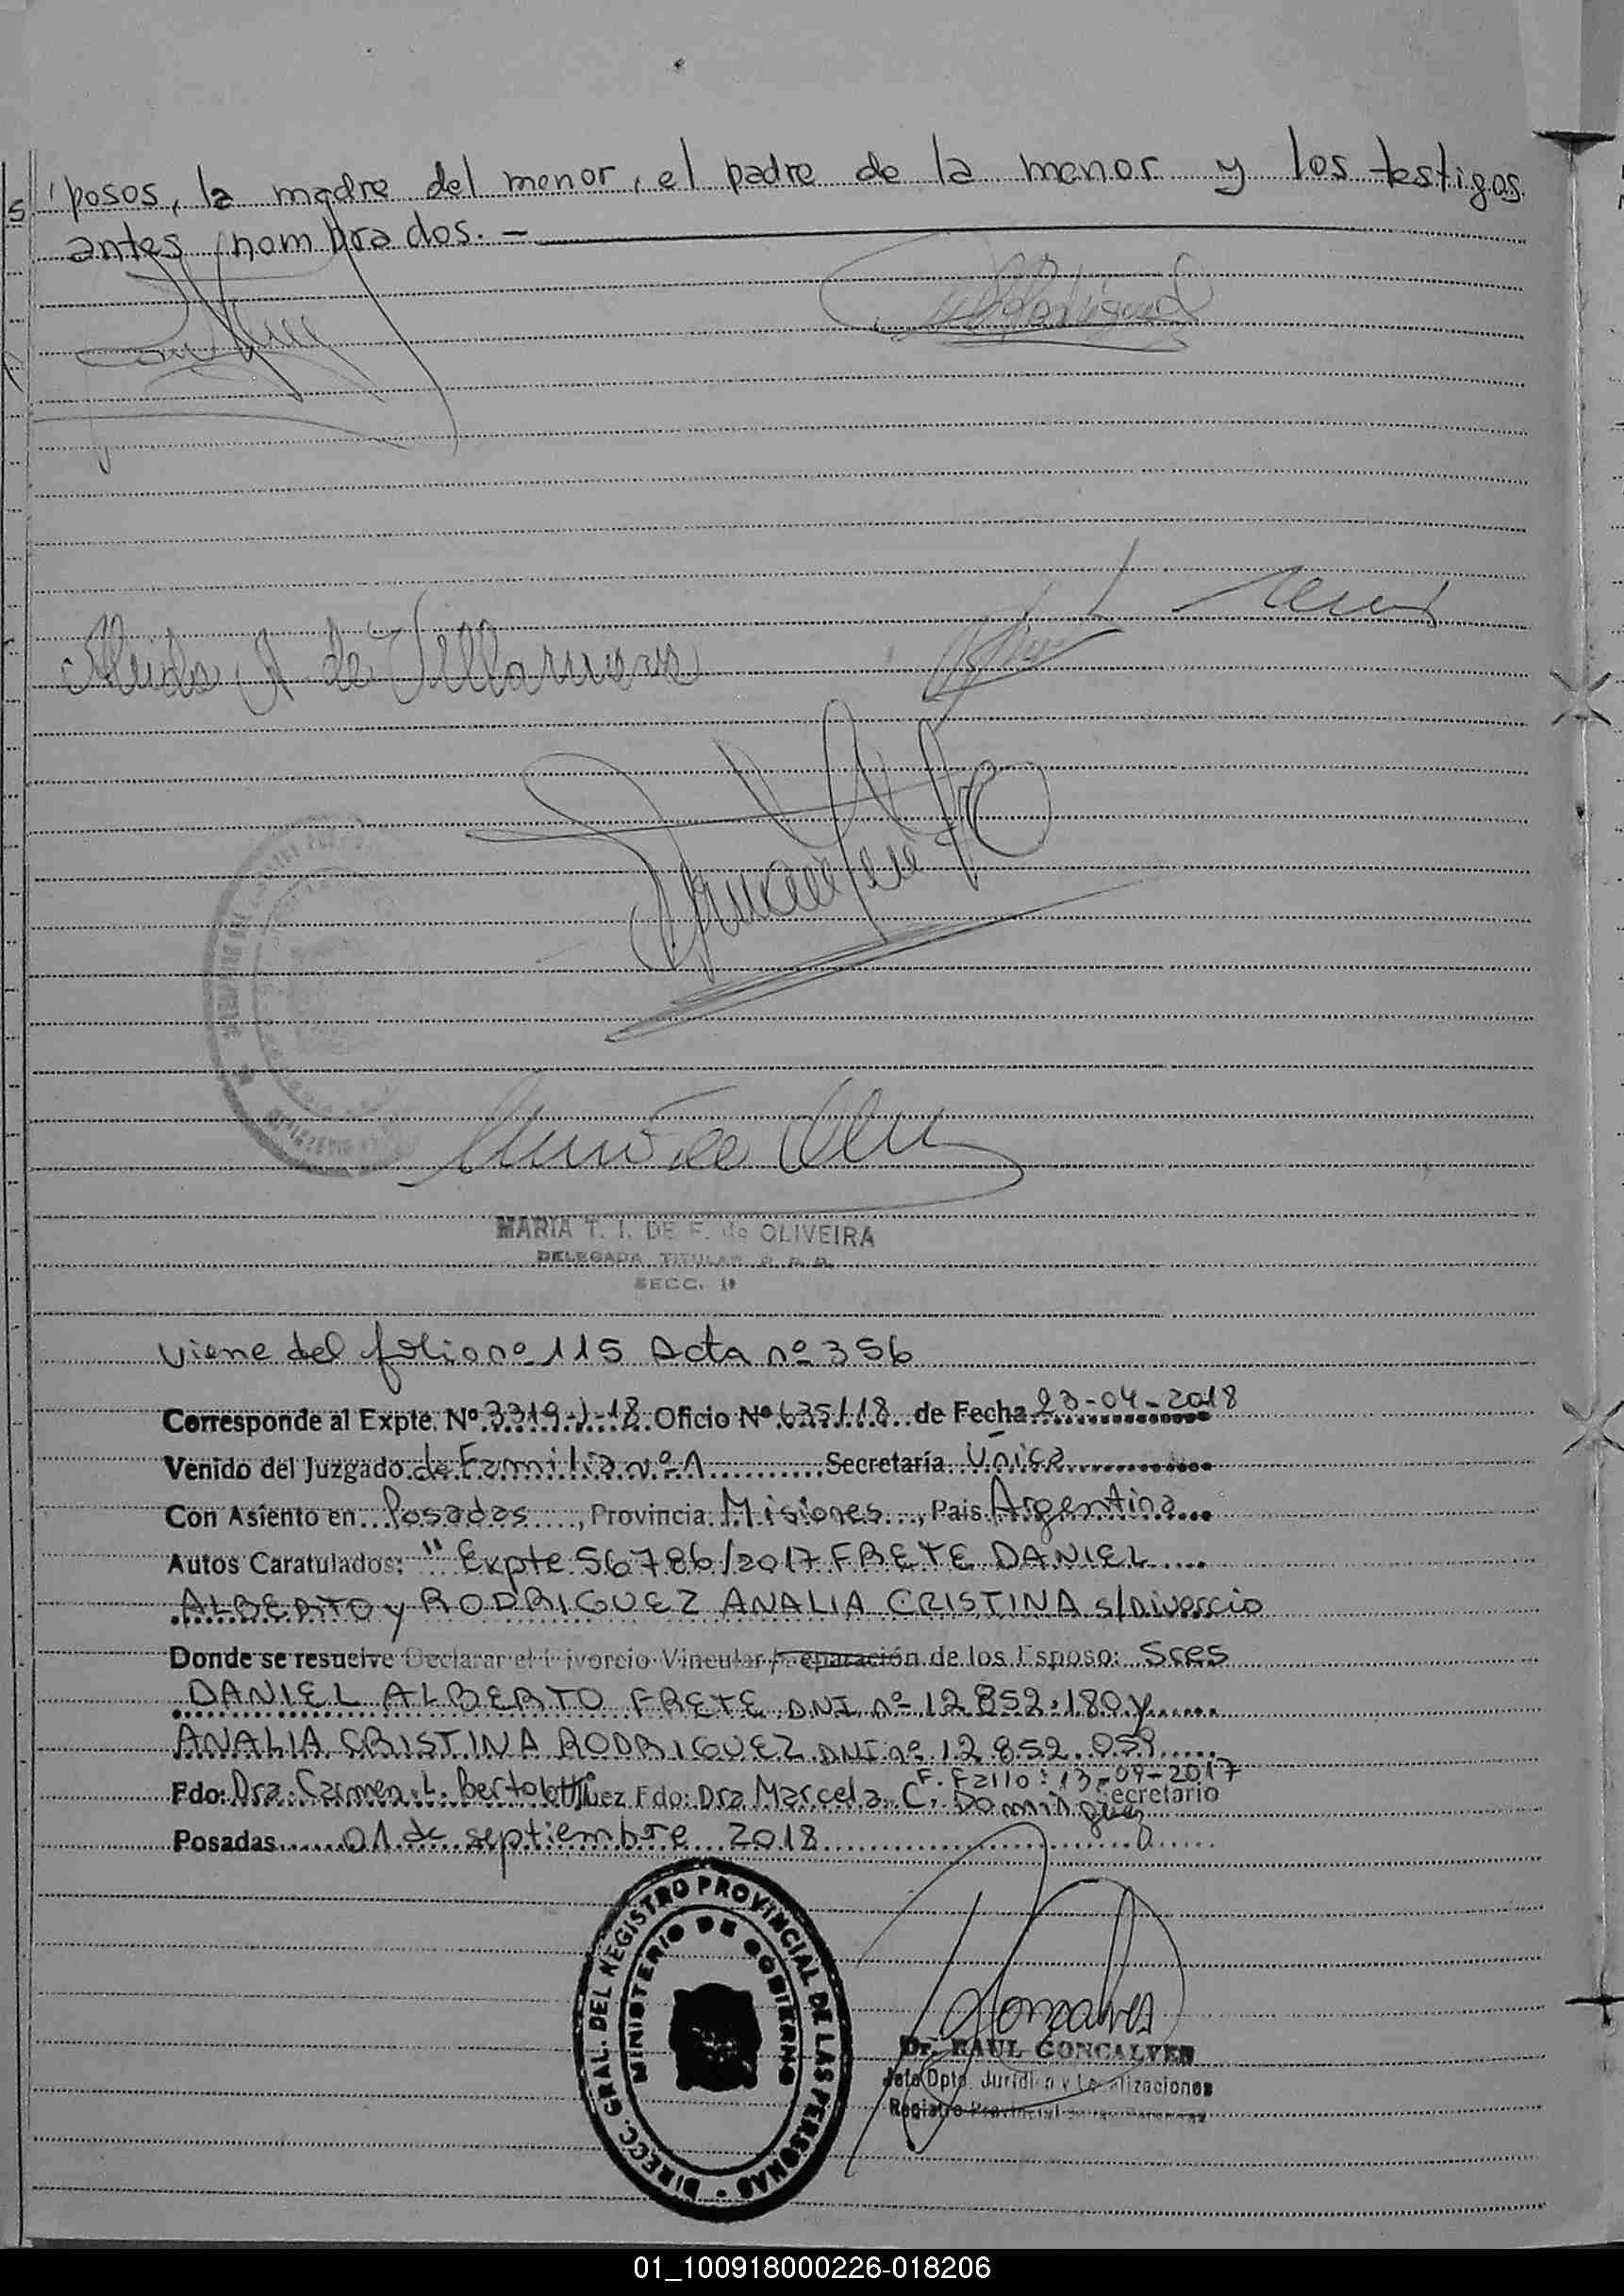 posos, la madre del menor, el padre de la menor y los testigos
antes nombrados. -
MARIA T. I. DE F. de OLIVEIRA
DELEGADA TITULAR
SECC. 1ª
Viene del folio nº 115 Acta nº 356
Corresponde al Expte. Nº 3319-J-18 Oficio Nº 635/18 de Fecha 23-04-2018
Venido del Juzgado de Familia nº 1 Secretaría Única
Con Asiento en Posadas, Provincia Misiones, Pais Argentina
Autos Caratulados: "Expte 56786/2017 FRETE DANIEL
ALBERTO y RODRIGUEZ ANALIA CRISTINA s/Divorcio
Donde se resuelve Declarar el Divorcio Vincular/Separación de los Esposo: Sres
DANIEL ALBERTO FRETE DNI nº 12.852.180 y
ANALIA CRISTINA RODRIGUEZ DNI nº 12.852.059
F. Fallo: 13-09-2017
Fdo: Dra. Carmen L. Bertolotti Juez Fdo: Dra Marcela C. Dominguez Secretario
Posadas 01 de septiembre 2018
DIRECC. GRAL. DEL REGISTRO PROVINCIAL DE LAS PERSONAS
MINISTERIO DE GOBIERNO
Dr. RAUL GONCALVES
Jefe Dpto. Jurídico y Localizaciones
Registro Provincial de las Personas
01_100918000226-018206